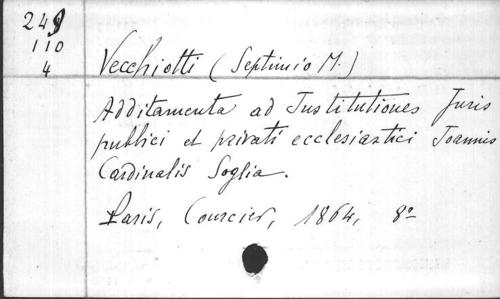 249
110
4
Vecchiotti (Septimio M.)
Additamenta ad Institutiones Juris
publici et privati ecclesiastici Joannis
Cardinalis Soglia.
Paris, Courcier, 1864, 8º